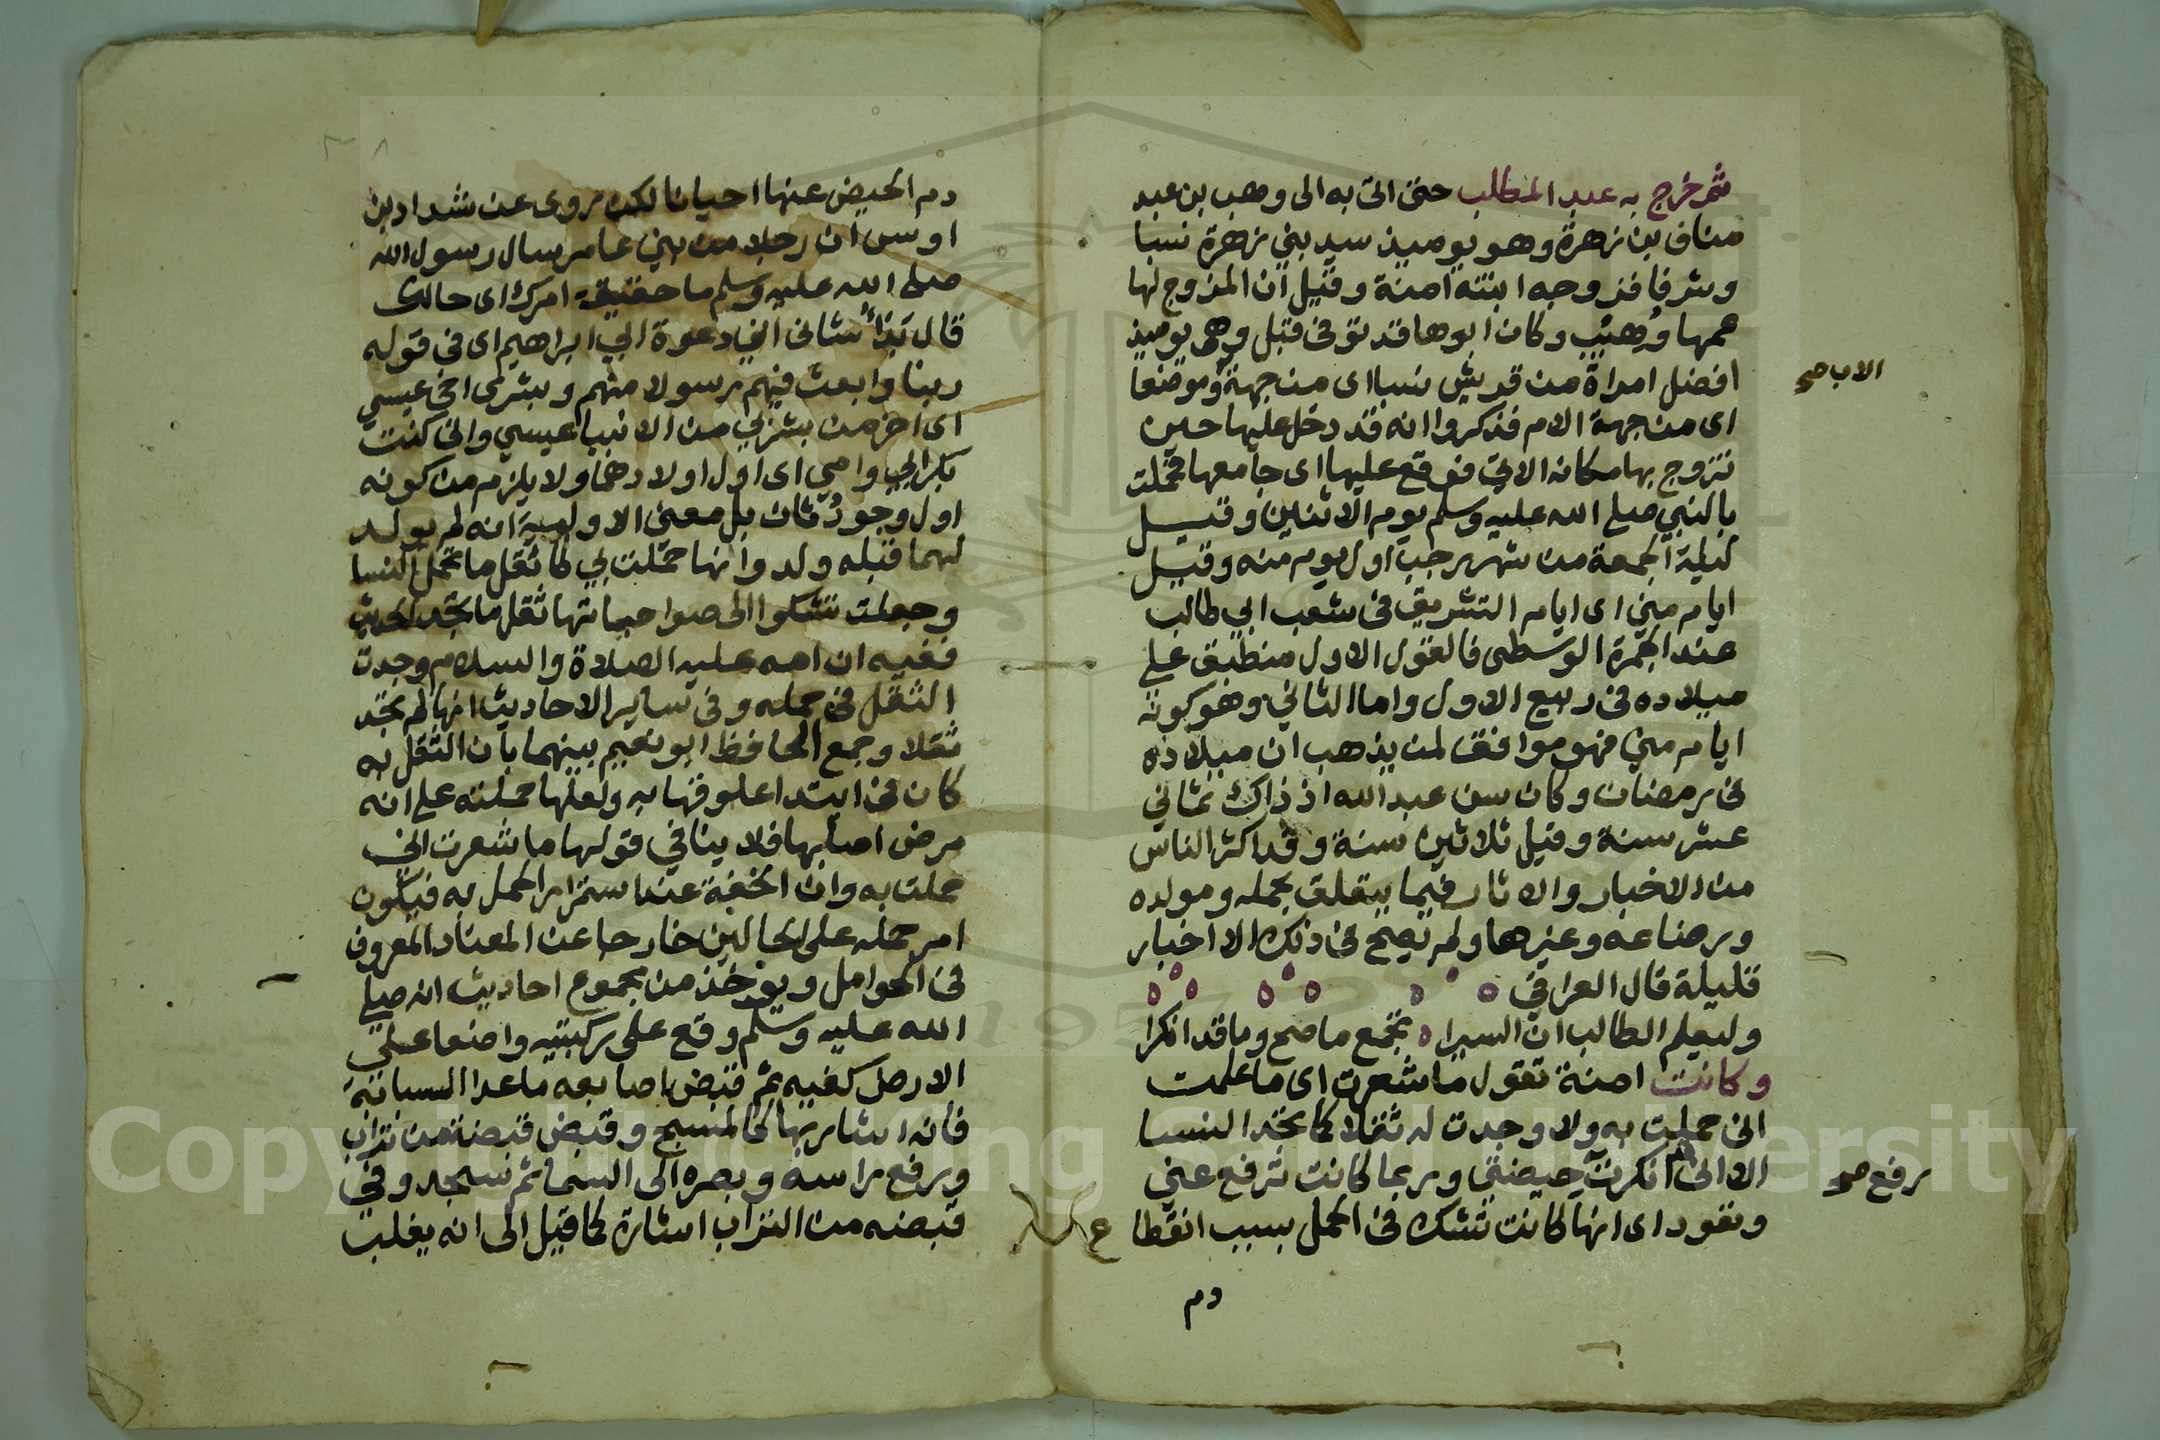 ثم خرج به عبد المطلب حتى اتى به الى وهب بن عبد
مناف بن زهرة وهو يوميذ سيد بني زهرة نسبا
وشرفا فزوجه ابنته امنة وقيل ان المزوج لها
عمها وُهَيْب وكان ابوها قد توفى قبل وهى يوميذ
افضل امراة من قريش نسبا اى من جهة وموضعا
الاب صح
اى من جهة الام فذكروا انه قد دخل عليها حين
تزوج بها مكانه الاتي فوقع عليها اى جامعها فحملت
بالنبي صلى الله عليه وسلم يوم الاثنين وقيل
ليلة الجمعة من شهر رجب اول يوم منه وقيل
ايام منى اى ايام التشريق فى شعب ابي طالب
عند الجمرة الوسطى فالقول الاول منطبق على
ميلاده فى ربيع الاول واما الثاني وهو كونه
ايام منى فهو موافق لمن يذهب ان ميلاده
فى رمضان وكان سن عبد الله اذ ذاك ثماني
عشر سنة وقيل ثلاثين سنة وقد اكثر الناس
من الاخبار والاثار فيما يتعلق بحمله ومولده
ورضاعه وغيرها ولم يصح فى ذلك الا اخبار
قليلة قال العراقي
وليعلم الطالب ان السيرا ه تجمع ما صح وما قد انكرا
وكانت امنة تقول ما شعرت اى ما علمت
انى حملت به ولا وجدت له ثقلا كما تجد النسا
الا انى انكرت حيضتي وربما كانت ترفع عني
رفع صح
وتعود اى انها كانت تشك فى الحمل بسبب انقطا ع
دم
دم الحيض عنها احيانا لكن روى عن شداد بن
اوس ان رجلا من بني عامر سال رسول الله
صلى الله عليه وسلم ما حقيقة امرك اى حالك
قال بَدْأُ شانى انى دعوة ابي ابراهيم اى فى قوله
ربنا وابعث فيهم رسولا منهم وبشرى اخى عيسى
اى اخر من بشر بي من الانبيا عيسى وانى كنت
بكر ابي وامي اى اول اولادهما ولا يلزم من كونه
اول وجودُ ثان بل معنى الاولوية انه لم يولد
لهما قبله ولد وانها حملت بي كاثقل ما تحمل النسا
وجعلت تشكوا الى صواحباتها ثقل ما تجد الحديث
ففيه ان امه عليه الصلاة والسلام وجدت
الثقل فى حمله وفى ساير الاحاديث انها لم تجد
ثقلا وجمع الحافظ ابو نعيم بينهما بان الثقل به
كان فى ابتدا علوقها به ولعلها حملته على انه
مرض اصابها فلا ينافي قولها ما شعرت انى
حملت به وان الخفة عند استمرار الحمل به فيكون
امر حمله على الحالين خارجا عن المعتاد المعروف
فى الحوامل ويوخذ من مجموع احاديث انه صلى
الله عليه وسلم وقع على ركبتيه واضعا على
الارض كفيه ثم قبض اصابعه ما عدا السبابة
فانه اشار بها كالمسبح وقبض قبضة من تراب
ورفع راسه وبصره الى السما ثم سجد وفي
قبضه من التراب اشارة كما قيل الى انه يغلب
Copyright © King Saud University
1957